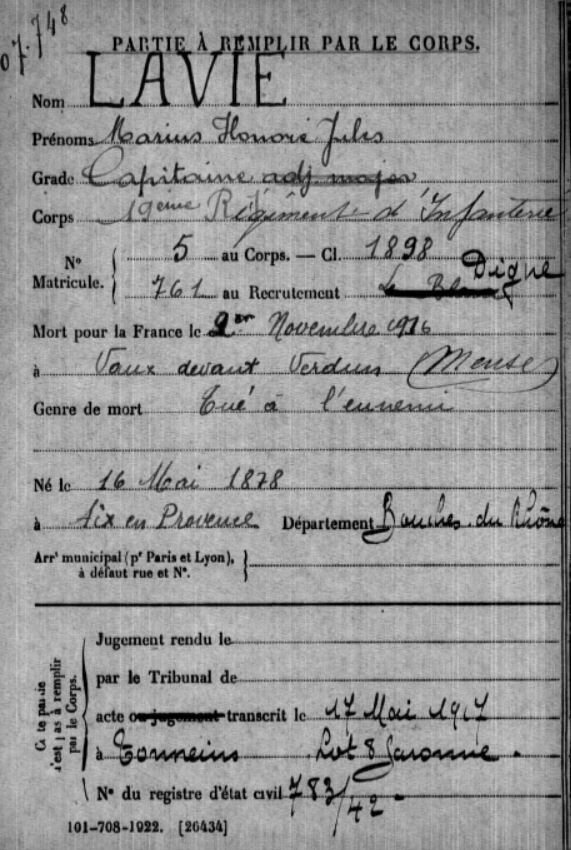 07.748
PARTIE À REMPLIR PAR LE CORPS.
Nom LAVIE
Prénoms Marius Honoré Jules
Grade Capitaine adj major
Corps 19eme Régiment d'Infanterie
N° Matricule. 5 au Corps. — Cl. 1898
Digne
761 au Recrutement Le Blanc
Mort pour la France le 2 Novembre 1916
à Vaux devant Verdun (Meuse)
Genre de mort Tué à l'ennemi
Né le 16 Mai 1878
à Aix en Provence Département Bouches du Rhône
Arrt municipal (pr Paris et Lyon),
à défaut rue et N°.
Cette partie
n'est pas à remplir
par le Corps.
Jugement rendu le
par le Tribunal de
acte ou jugement transcrit le 17 Mai 1917
à Tonneins Lot & Garonne.
N° du registre d'état civil 783/42
101-708-1922. [26434]